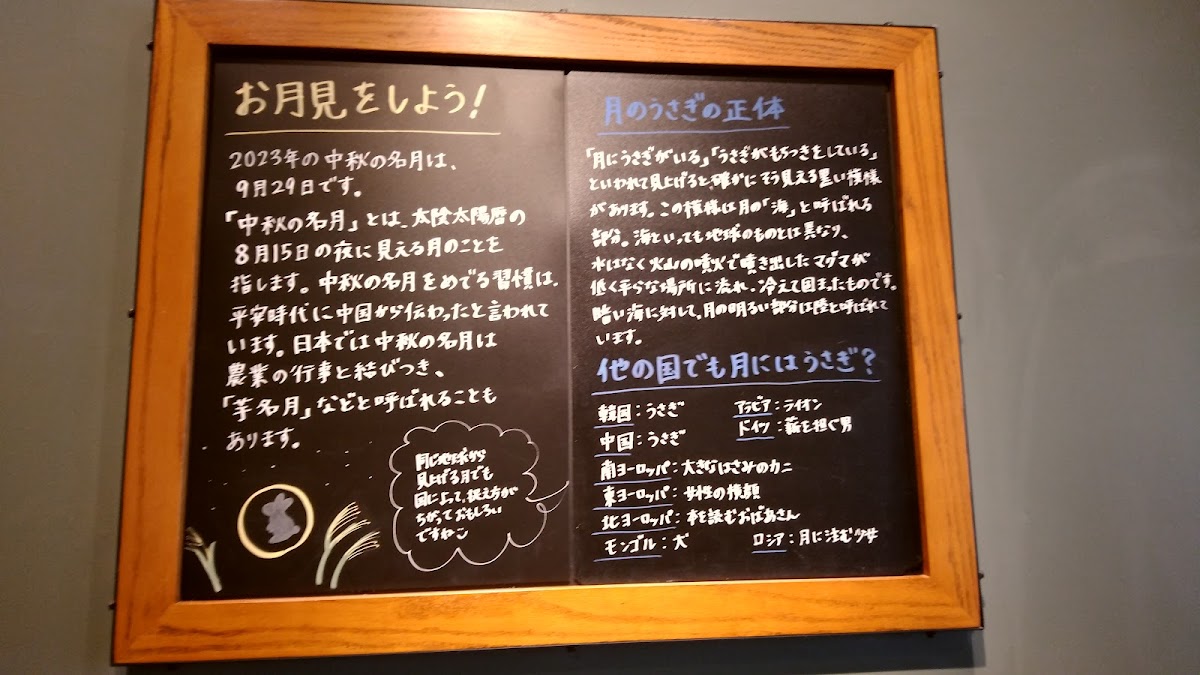 お月見をしよう!
2023年の中秋の名月は、
9月29日です。
「中秋の名月」とは、太陰太陽暦の
8月15日の夜に見える月のことを
指します。中秋の名月をめでる習慣は、
平安時代に中国から伝わったと言われて
います。日本では中秋の名月は
農業の行事と結びつき、
「芋名月」などと呼ばれることも
あります。
同じ地球から
見上げる月でも
国によって、捉え方が
ちがっておもしろい
ですねこ
月のうさぎの正体
「月にうさぎがいる」「うさぎがもちつきをしている」
といわれて見上げると、確かにそう見える黒い模様
があります。この模様は月の「海」と呼ばれる
部分。海といっても地球のものとは異なり、
水はなく火山の噴火で噴き出したマグマが
低く平らな場所に流れ、冷えて固まったものです。
暗い海に対して、月の明るい部分は陸と呼ばれて
います。
他の国でも月にはうさぎ?
韓国:うさぎ アラビア:ライオン
中国:うさぎ ドイツ:薪を担ぐ男
南ヨーロッパ:大きなはさみのカニ
東ヨーロッパ:女性の横顔
北ヨーロッパ:本を読むおばあさん
モンゴル:犬 ロシア:月に住む少女